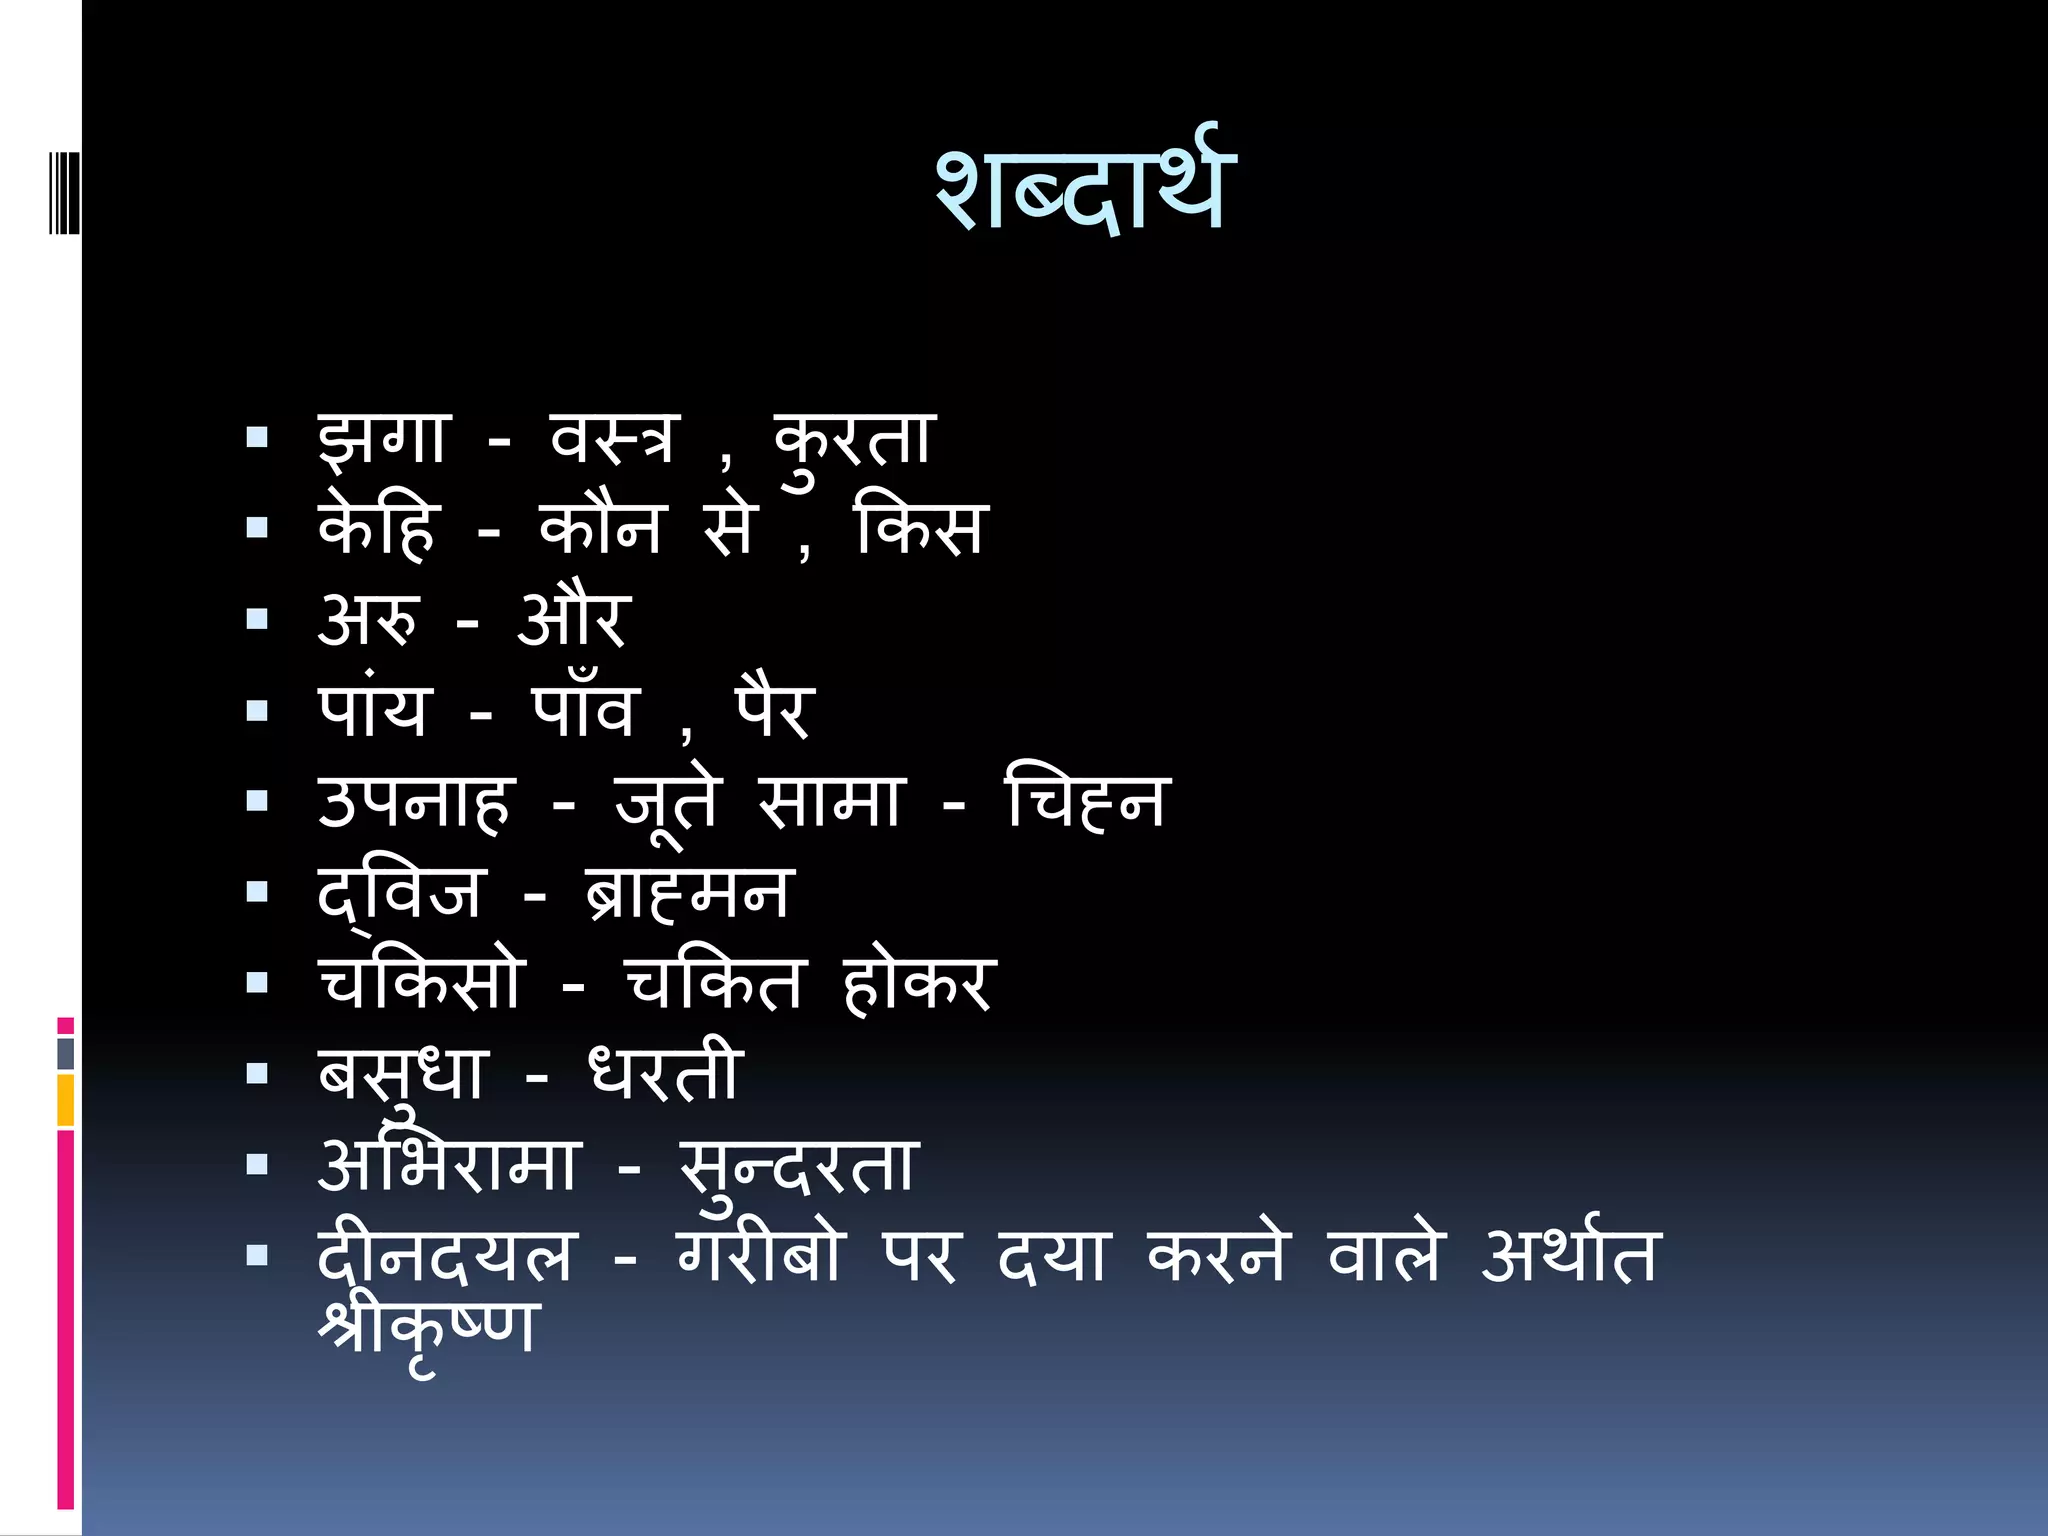 शब्दार्थ
झगा - वस्त्र , कुरता
केहि - कौन से , किस
अरु - और
पांय - पाँव , पैर
उपनाह - जूते सामा - चिह्न
द्विज - ब्राह्मन
चकिसो - चकित होकर
बसुधा - धरती
अभिरामा - सुन्दरता
दीनदयल - गरीबो पर दया करने वाले अर्थात
श्रीकृष्ण